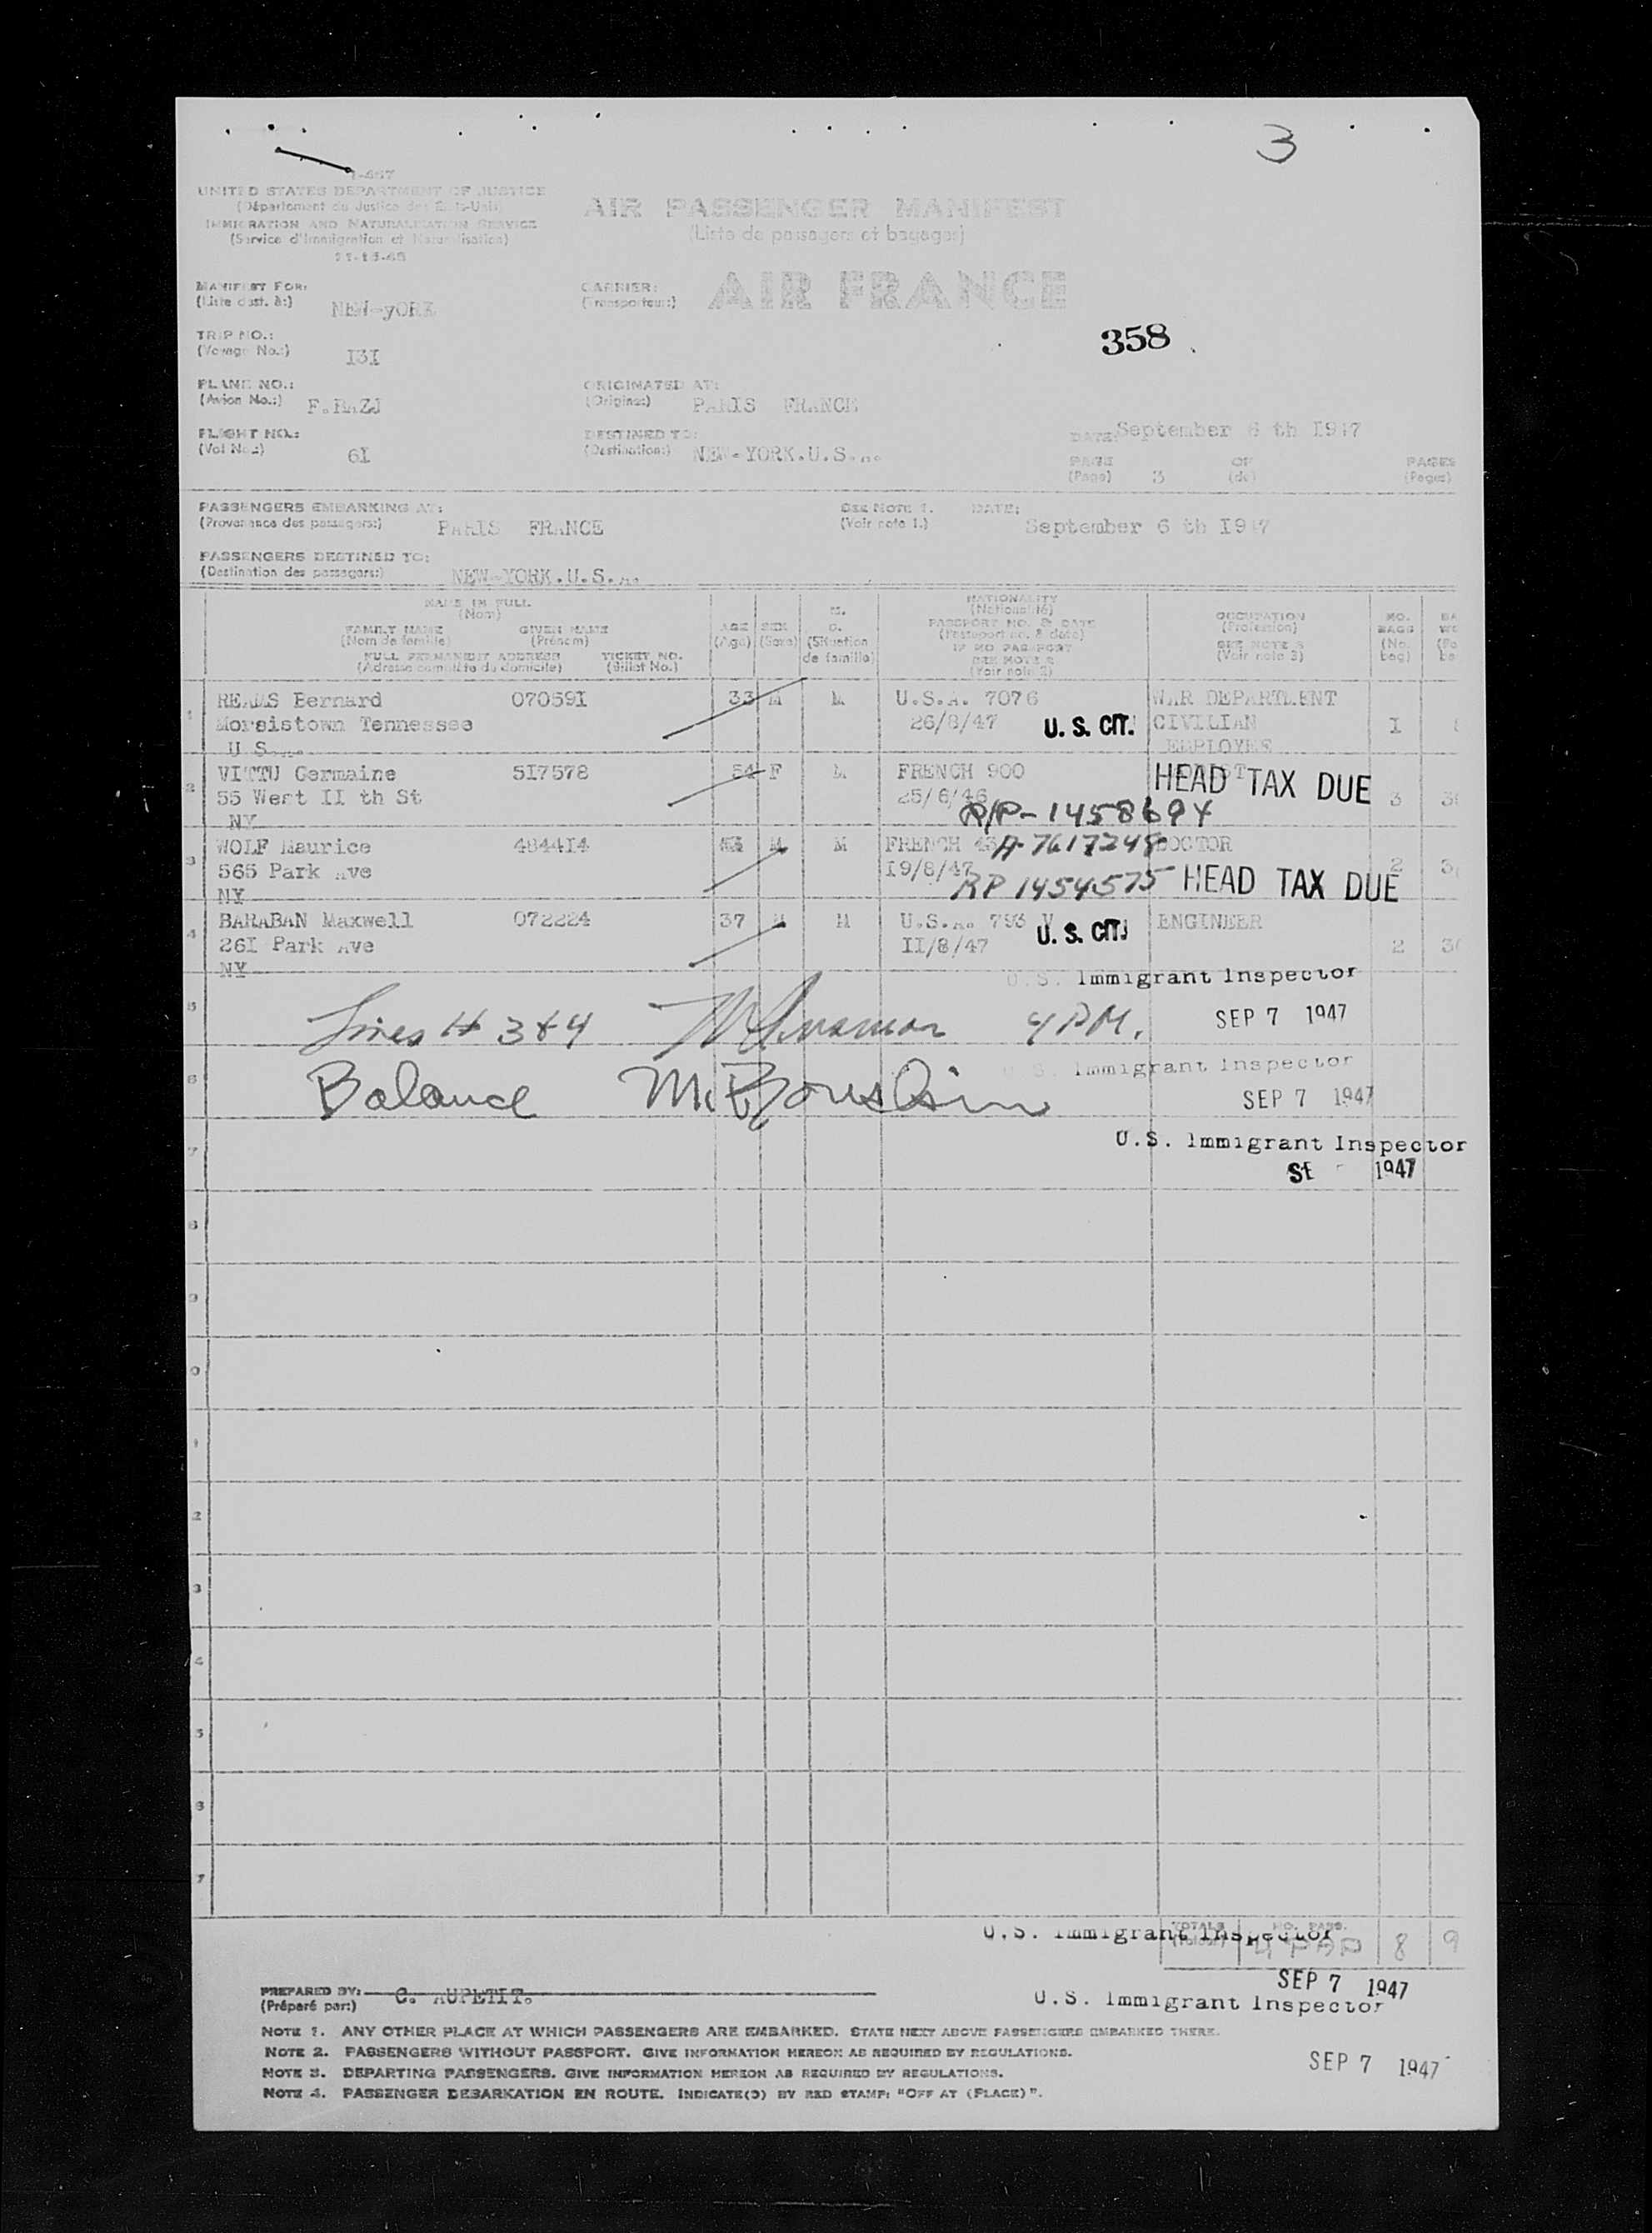 3
I-467
UNITED STATES DEPARTMENT OF JUSTICE
(Département du Justice des Etats-Unis)
IMMIGRATION AND NATURALISATION SERVICE
(Service d'Immigration et Naturalisation)
11-15-45
AIR PASSENGER MANIFEST
(Liste de passagers et bagages)
MANIFEST FOR:
(Liste dest. à:) NEW-yORK
CARRIER:
(Transporteur:) AIR FRANCE
358
TRIP NO.:
(Voyage No.:) I3I
PLANE NO.:
(Avion No.:) F.BAZJ
ORIGINATED AT:
(Origine:) PARIS FRANCE
FLIGHT NO.:
(Vol No.:) 6I
DESTINED TO:
(Destination:) NEW-YORK.U.S.A.
DATE: September 6 th I947
PAGE 3 OF PAGES
(Page) (de) (Pages)
PASSENGERS EMBARKING AT:
(Provenance des passagers:) PARIS FRANCE
SEE NOTE 1.
(Voir note 1.)
DATE: September 6 th I947
PASSENGERS DESTINED TO:
(Destination des passagers:) NEW-YORK.U.S.A.
NAME IN FULL
(Nom)
FAMILY NAME GIVEN NAME
(Nom de famille) (Prénom)
FULL PERMANENT ADDRESS TICKET NO.
(Adresse complète du domicile) (Billet No.)
AGE
(Age)
SEX
(Sexe)
M.
O.
(Situation
de famille)
NATIONALITY
(Nationalité)
PASSPORT NO. & DATE
(Passeport no. & date)
IF NO PASSPORT
SEE NOTE 2
(Voir note 2)
OCCUPATION
(Profession)
SEE NOTE 3
(Voir note 3)
NO.
BAGS
(No.
bag)
1 REAMS Bernard 07059I 33 M M U.S.A. 7076 WAR DEPARTMENT
Morsistown Tennessee 26/8/47 U. S. CIT. CIVILIAN I
U S A. EMPLOYEE
2 VITTU Germaine 5I7578 54 F M FRENCH 900 HEAD TAX DUE
55 West II th St 25/6/46 3
NY R/P-1458694
3 WOLF Maurice 4844I4 53 M M FRENCH A-7617248 DOCTOR
565 Park Ave I9/8/47 2
NY RP 1454575 HEAD TAX DUE
4 BARABAN Maxwell 072224 37 M M U.S.A. 793 V ENGINEER
26I Park Ave II/8/47 U. S. CIT. 2
NY
U.S. Immigrant Inspector
5 Lines # 3 & 4 4 P.M. SEP 7 1947
U.S. Immigrant Inspector
6 Balance SEP 7 1947
7 U.S. Immigrant Inspector
1947
8
9
0
1
2
3
4
5
6
7
U.S. Immigrant Inspector
TOTALS NO. PASS.
8
SEP 7 1947
PREPARED BY: C. AUPETIT.
(Préparé par:)
U.S. Immigrant Inspector
SEP 7 1947
NOTE 1. ANY OTHER PLACE AT WHICH PASSENGERS ARE EMBARKED. STATE NEXT ABOVE PASSENGERS EMBARKED THERE.
NOTE 2. PASSENGERS WITHOUT PASSPORT. GIVE INFORMATION HEREON AS REQUIRED BY REGULATIONS.
NOTE 3. DEPARTING PASSENGERS. GIVE INFORMATION HEREON AS REQUIRED BY REGULATIONS.
NOTE 4. PASSENGER DEBARKATION EN ROUTE. INDICATE(D) BY RED STAMP: "OFF AT (PLACE)".